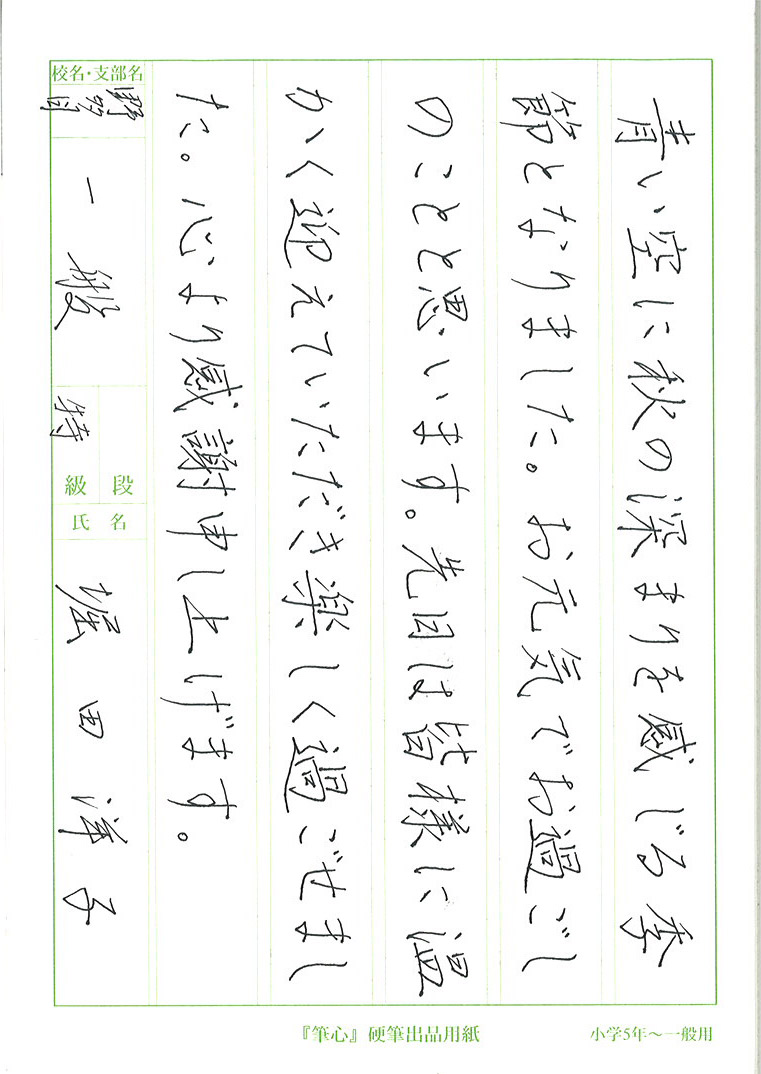 青い空に秋の深まりを感じる季
節となりました。お元気でお過ごし
のことと思います。先日は皆様に温
かく迎えていただき楽しく過ごせまし
た。心より感謝申し上げます。
校名・支部名
野多目
一般
特
級 段
氏 名
堀田洋子
『筆心』硬筆出品用紙
小学5年～一般用